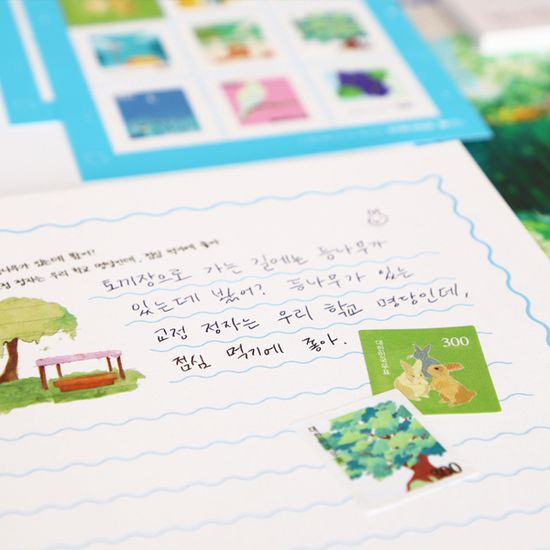 나무가 있는데 봤어?
정 정자는 우리 학교 명당인데, 점심 먹기에 좋아
토끼장으로 가는 길에는 등나무가
있는데 봤어? 등나무가 있는
교정 정자는 우리 학교 명당인데,
점심 먹기에 좋아.
300
대한민국우표
300